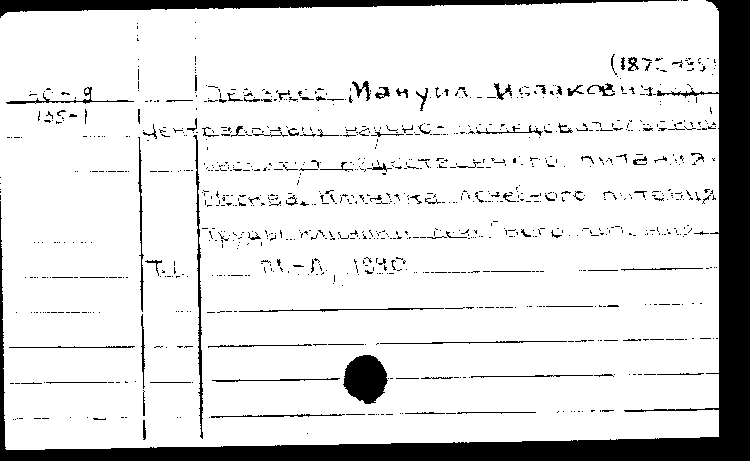 (1872-195
135-1
Певзнер Мануил Исаакович, ред.
Центральный научно-исследовательский
институт общественного питания.
Москва. Клиника лечебного питания
Труды клиники лечебного питания
Т.I. М.-Л, 1940